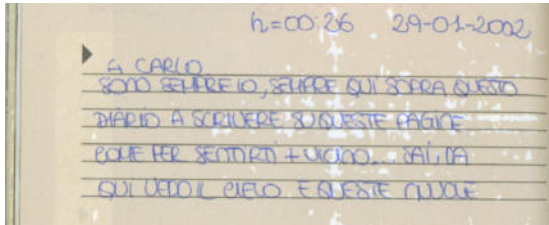 h=00:26 29-01-2002
A CARLO
SONO SEMPRE IO, SEMPRE QUI SOPRA QUESTO
DIARIO A SCRIVERE SU QUESTE PAGINE
COME PER SENTIRTI + VICINO... SAI, DA
QUI VEDO IL CIELO E QUESTE NUVOLE